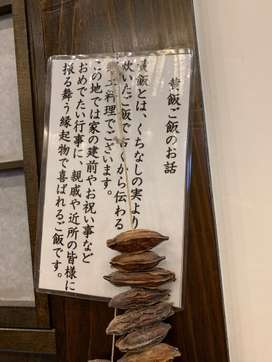 黄飯ご飯のお話
黄飯とは、くちなしの実より
炊いたご飯で古くから伝わる
郷土料理でございます。
この地では家の建前やお祝い事など
おめでたい行事に、親戚や近所の皆様に
振る舞う縁起物で喜ばれるご飯です。